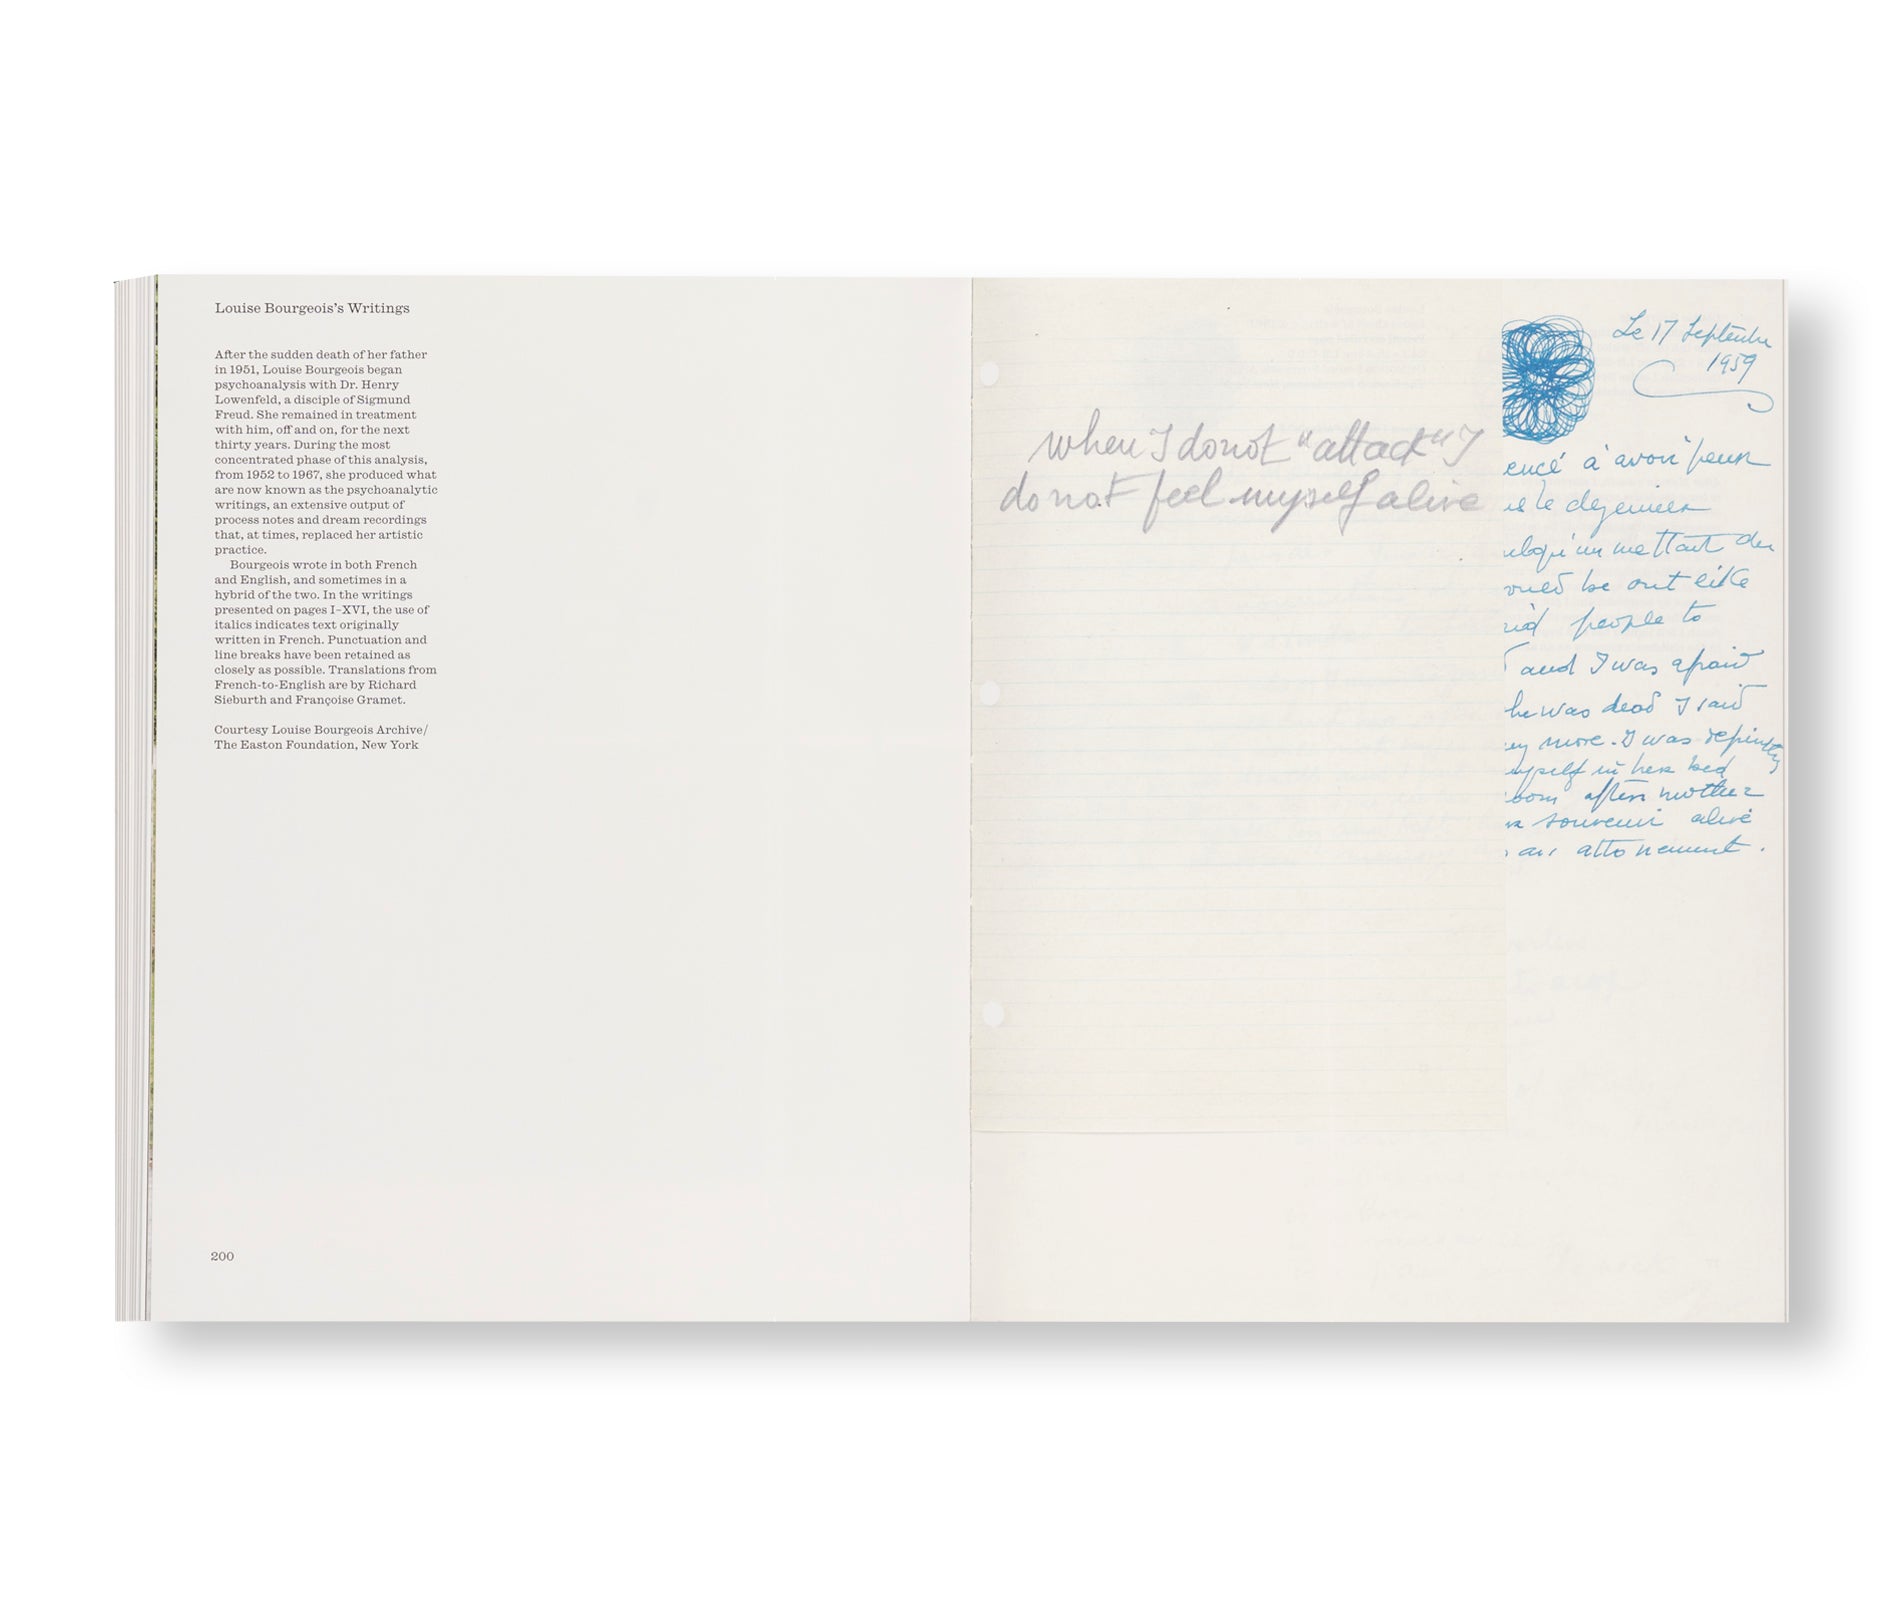 Louise Bourgeois's Writings
After the sudden death of her father
in 1951, Louise Bourgeois began
psychoanalysis with Dr. Henry
Lowenfeld, a disciple of Sigmund
Freud. She remained in treatment
with him, off and on, for the next
thirty years. During the most
concentrated phase of this analysis,
from 1952 to 1967, she produced what
are now known as the psychoanalytic
writings, an extensive output of
process notes and dream recordings
that, at times, replaced her artistic
practice.
Bourgeois wrote in both French
and English, and sometimes in a
hybrid of the two. In the writings
presented on pages I–XVI, the use of
italics indicates text originally
written in French. Punctuation and
line breaks have been retained as
closely as possible. Translations from
French-to-English are by Richard
Sieburth and Françoise Gramet.
Courtesy Louise Bourgeois Archive/
The Easton Foundation, New York
200
when I do not "attack" I
do not feel myself alive
Le 17 Septembre
1959
encé à avoir peur
le
mettait du
be out like
people to
and I was afraid
he was dead I said
more. I was
myself in her bed
oom after mother
souvenir alive